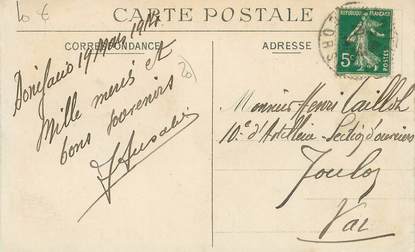 10 €
CARTE POSTALE
CORRESPONDANCE
ADRESSE
RÉPUBLIQUE FRANÇAISE
5c
POSTES
Bonifacio 19 Mars 1914
Mille mercis et
bons souvenirs
20
Monsieur Henri
10e d'Artillerie - Section d'ouvriers
Toulon
Var